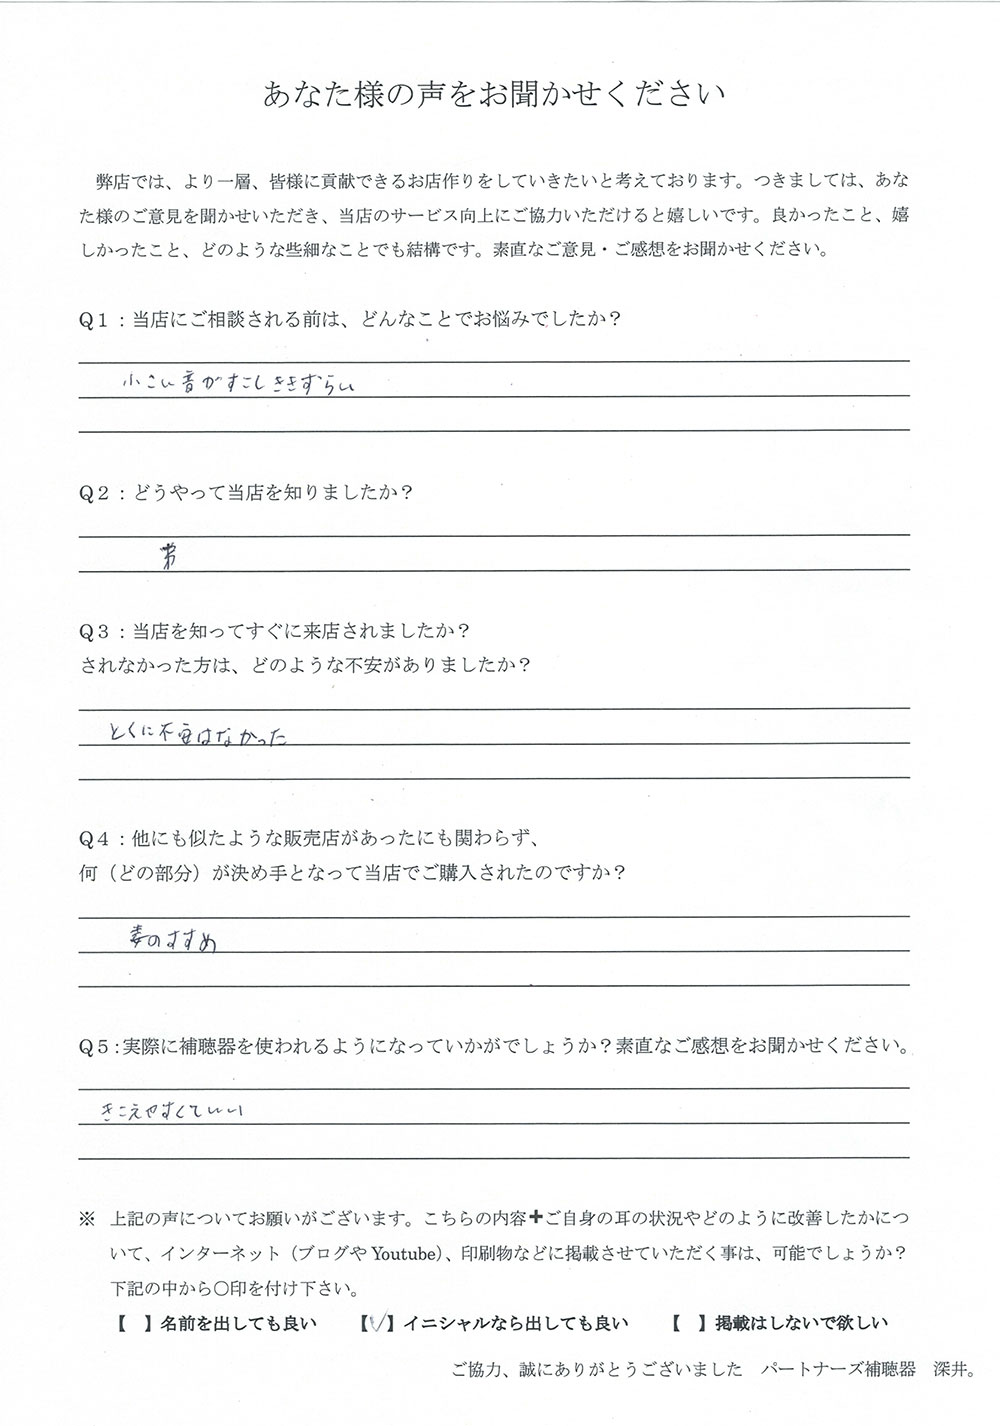 あなた様の声をお聞かせください
弊店では、より一層、皆様に貢献できるお店作りをしていきたいと考えております。つきましては、あな
た様のご意見を聞かせいただき、当店のサービス向上にご協力いただけると嬉しいです。良かったこと、嬉
しかったこと、どのような些細なことでも結構です。素直なご意見・ご感想をお聞かせください。
Q１：当店にご相談される前は、どんなことでお悩みでしたか？
小さい音がすこしききずらい
Q２：どうやって当店を知りましたか？
弟
Q３：当店を知ってすぐに来店されましたか？
されなかった方は、どのような不安がありましたか？
とくに不安はなかった
Q４：他にも似たような販売店があったにも関わらず、
何（どの部分）が決め手となって当店でご購入されたのですか？
妻のすすめ
Q５：実際に補聴器を使われるようになっていかがでしょうか？素直なご感想をお聞かせください。
きこえやすくていい
※ 上記の声についてお願いがございます。こちらの内容＋ご自身の耳の状況やどのように改善したかにつ
いて、インターネット（ブログや Youtube）、印刷物などに掲載させていただく事は、可能でしょうか？
下記の中から〇印を付け下さい。
【　】名前を出しても良い　【✓】イニシャルなら出しても良い　【　】掲載はしないで欲しい
ご協力、誠にありがとうございました　パートナーズ補聴器　深井。